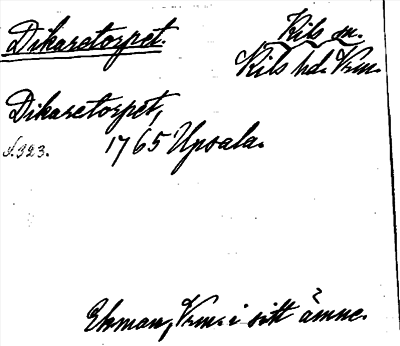 Dikaretorpet.
Kils sn.
Kils hd. Vrm.
Dikaretorpet,
1765 Upsala.
s. 323.
Ekman, Vrm. i sitt ämne.